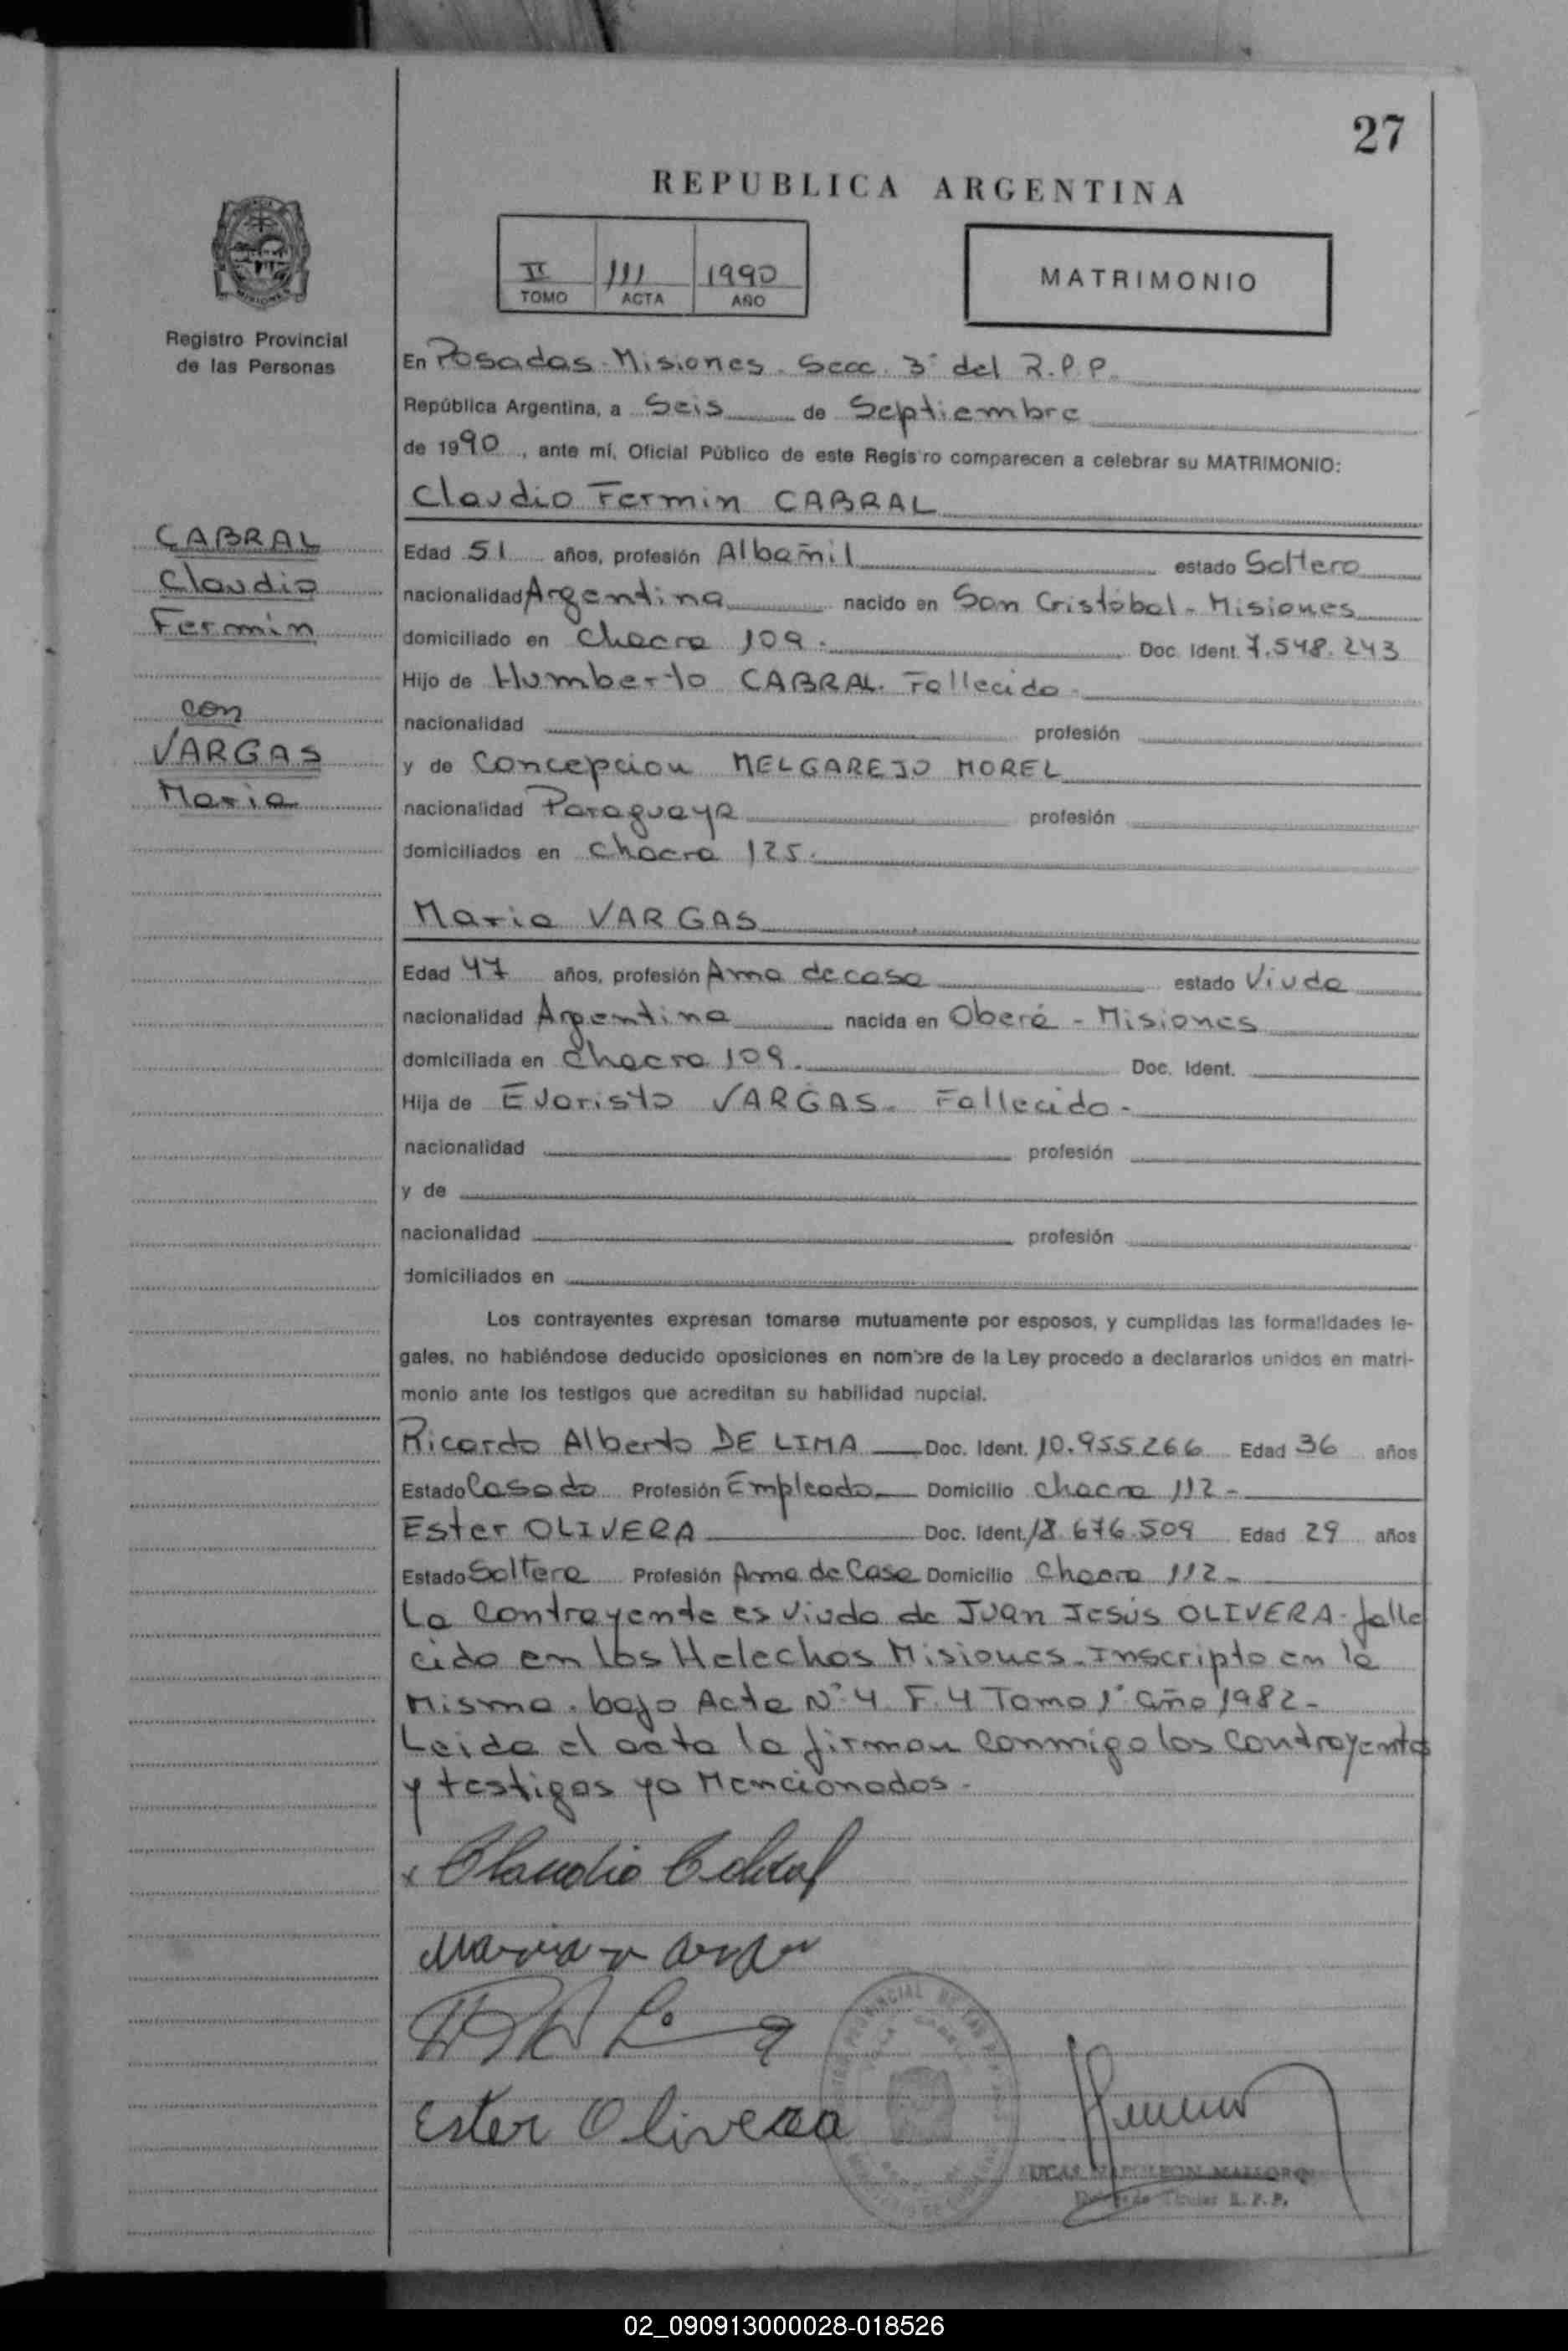 27
REPUBLICA ARGENTINA
II 111 1990
TOMO ACTA AÑO
MATRIMONIO
Registro Provincial
de las Personas
En Posadas-Misiones. Secc. 3° del R.P.P.
República Argentina, a Seis de Septiembre
de 1990, ante mí, Oficial Público de este Registro comparecen a celebrar su MATRIMONIO:
Claudio Fermin CABRAL
CABRAL
Claudio
Fermin
con
VARGAS
Maria
Edad 51 años, profesión Albañil estado Soltero
nacionalidad Argentina nacido en San Cristóbal - Misiones
domiciliado en Chacra 109. Doc. Ident. 7.548.243
Hijo de Humberto CABRAL. Fallecido-
nacionalidad profesión
y de Concepcion MELGAREJO MOREL
nacionalidad Paraguaya profesión
domiciliados en Chacra 125.
Maria VARGAS
Edad 47 años, profesión Ama de casa estado Viuda
nacionalidad Argentina nacida en Oberá - Misiones
domiciliada en Chacra 109. Doc. Ident.
Hija de Evaristo VARGAS. Fallecido-
nacionalidad profesión
y de
nacionalidad profesión
domiciliados en
Los contrayentes expresan tomarse mutuamente por esposos, y cumplidas las formalidades le-
gales, no habiéndose deducido oposiciones en nombre de la Ley procedo a declararlos unidos en matri-
monio ante los testigos que acreditan su habilidad nupcial.
Ricardo Alberto DE LIMA Doc. Ident. 10.955.266 Edad 36 años
Estado Casado Profesión Empleado Domicilio Chacra 112-
Ester OLIVERA Doc. Ident. 18.676.509 Edad 29 años
Estado Soltera Profesión Ama de Casa Domicilio Chacra 112-
La Contrayente es viuda de Juan Jesús OLIVERA-falle
cido en los Helechos Misiones-Inscripto en la
Misma. bajo Acta N° 4 F. 4 Tomo 1° año 1982-
Leida el acta la firman conmigo los contrayentes
y testigos ya Mencionados-
x Claudio Cabral
Maria Vargas
Ester Olivera
Titular R.P.P.
02_090913000028-018526